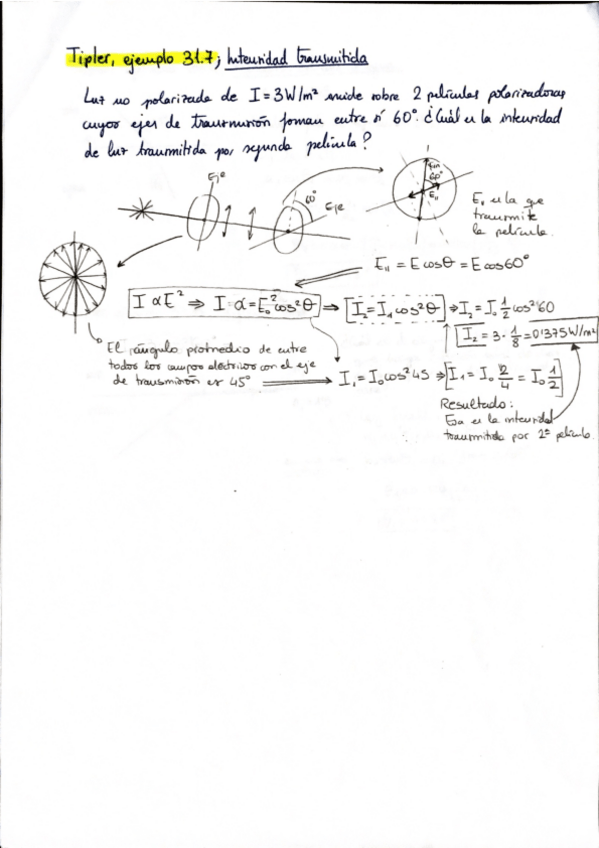 Tipler, ejemplo 31.7; Intensidad transmitida
Luz no polarizada de I = 3W/m² incide sobre 2 películas polarizadoras
cuyos ejes de transmisión forman entre sí 60°. ¿Cuál es la intensidad
de luz transmitida por segunda película?
Eje
60°
Eje
60°
E∥
E∥ es la que
transmite
la película.
E∥ = E cosθ = E cos60°
I α E² ⇒ I = α = E₀² cos²θ ⇒ [I₂ = I₁ cos²θ] ⇒ I₂ = I₀ 1/2 cos²60
I₂ = 3 · 1/8 = 0'1375 W/m²
El ángulo promedio de entre
todos los campos eléctricos con el eje
de transmisión es 45° ⇒ I₁ = I₀ cos²45 ⇒ [I₁ = I₀ 2/4 = I₀ 1/2]
Resultado:
Esa es la intensidad
transmitida por 2ª película.